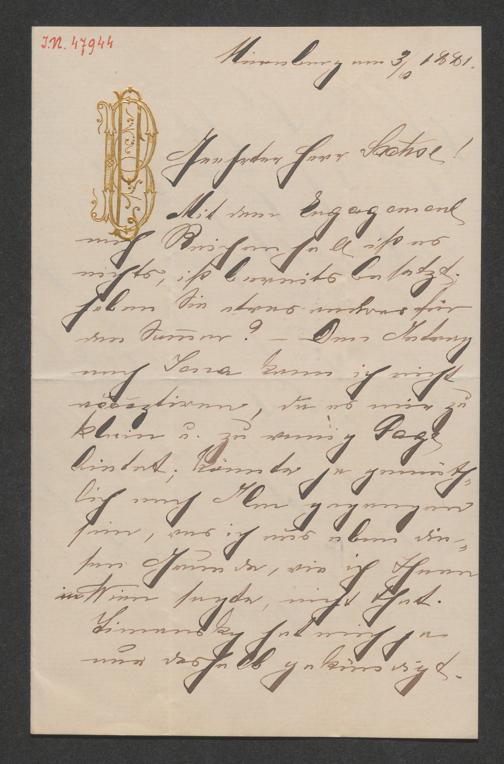 I.N. 47944
Nürnberg am 3/6 1881.
Geehrter Herr Sachse!
Mit dem Engagement
nach Reichenhall ist es
nichts, ist bereits besetzt.
haben Sie etwas anderes für
den Sommer? – Den Antrag
nach Jena kann ich nicht
acceptiren, da es mir zu
klein u. zu wenig Gage
bietet; könnte ja gemüth-
lich nach Ulm gegangen
sein, was ich aus eben die-
sem Grunde, wie ich Ihnen
in Wien sagte, nicht that.
hat mich ja
nur deshalb gekündigt.